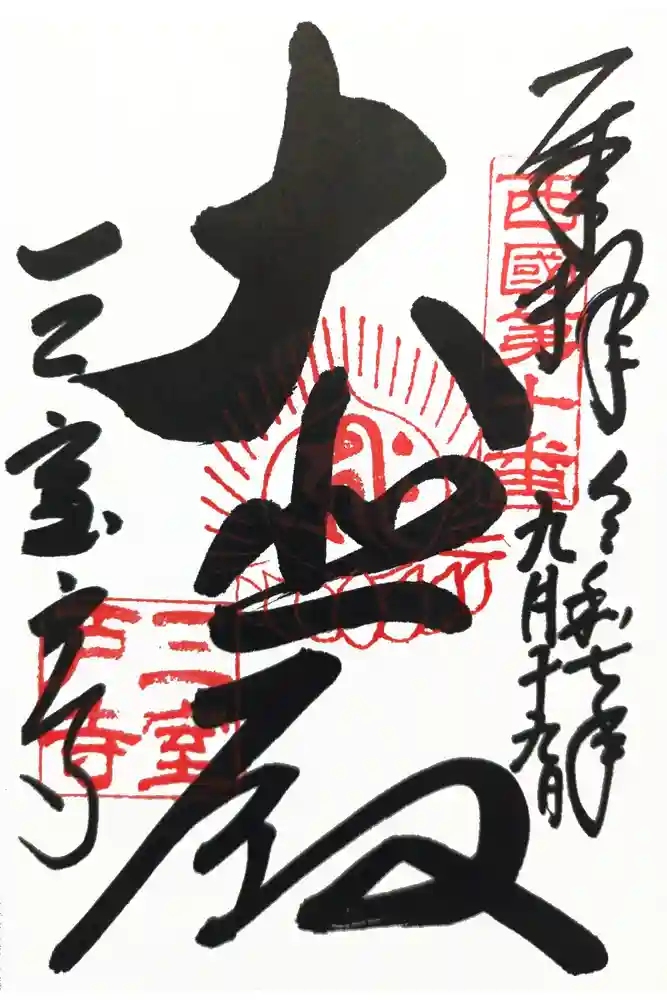 奉拝
令和七年
九月十九日
西國第十番
大悲殿
三室戸寺
三室
戸寺